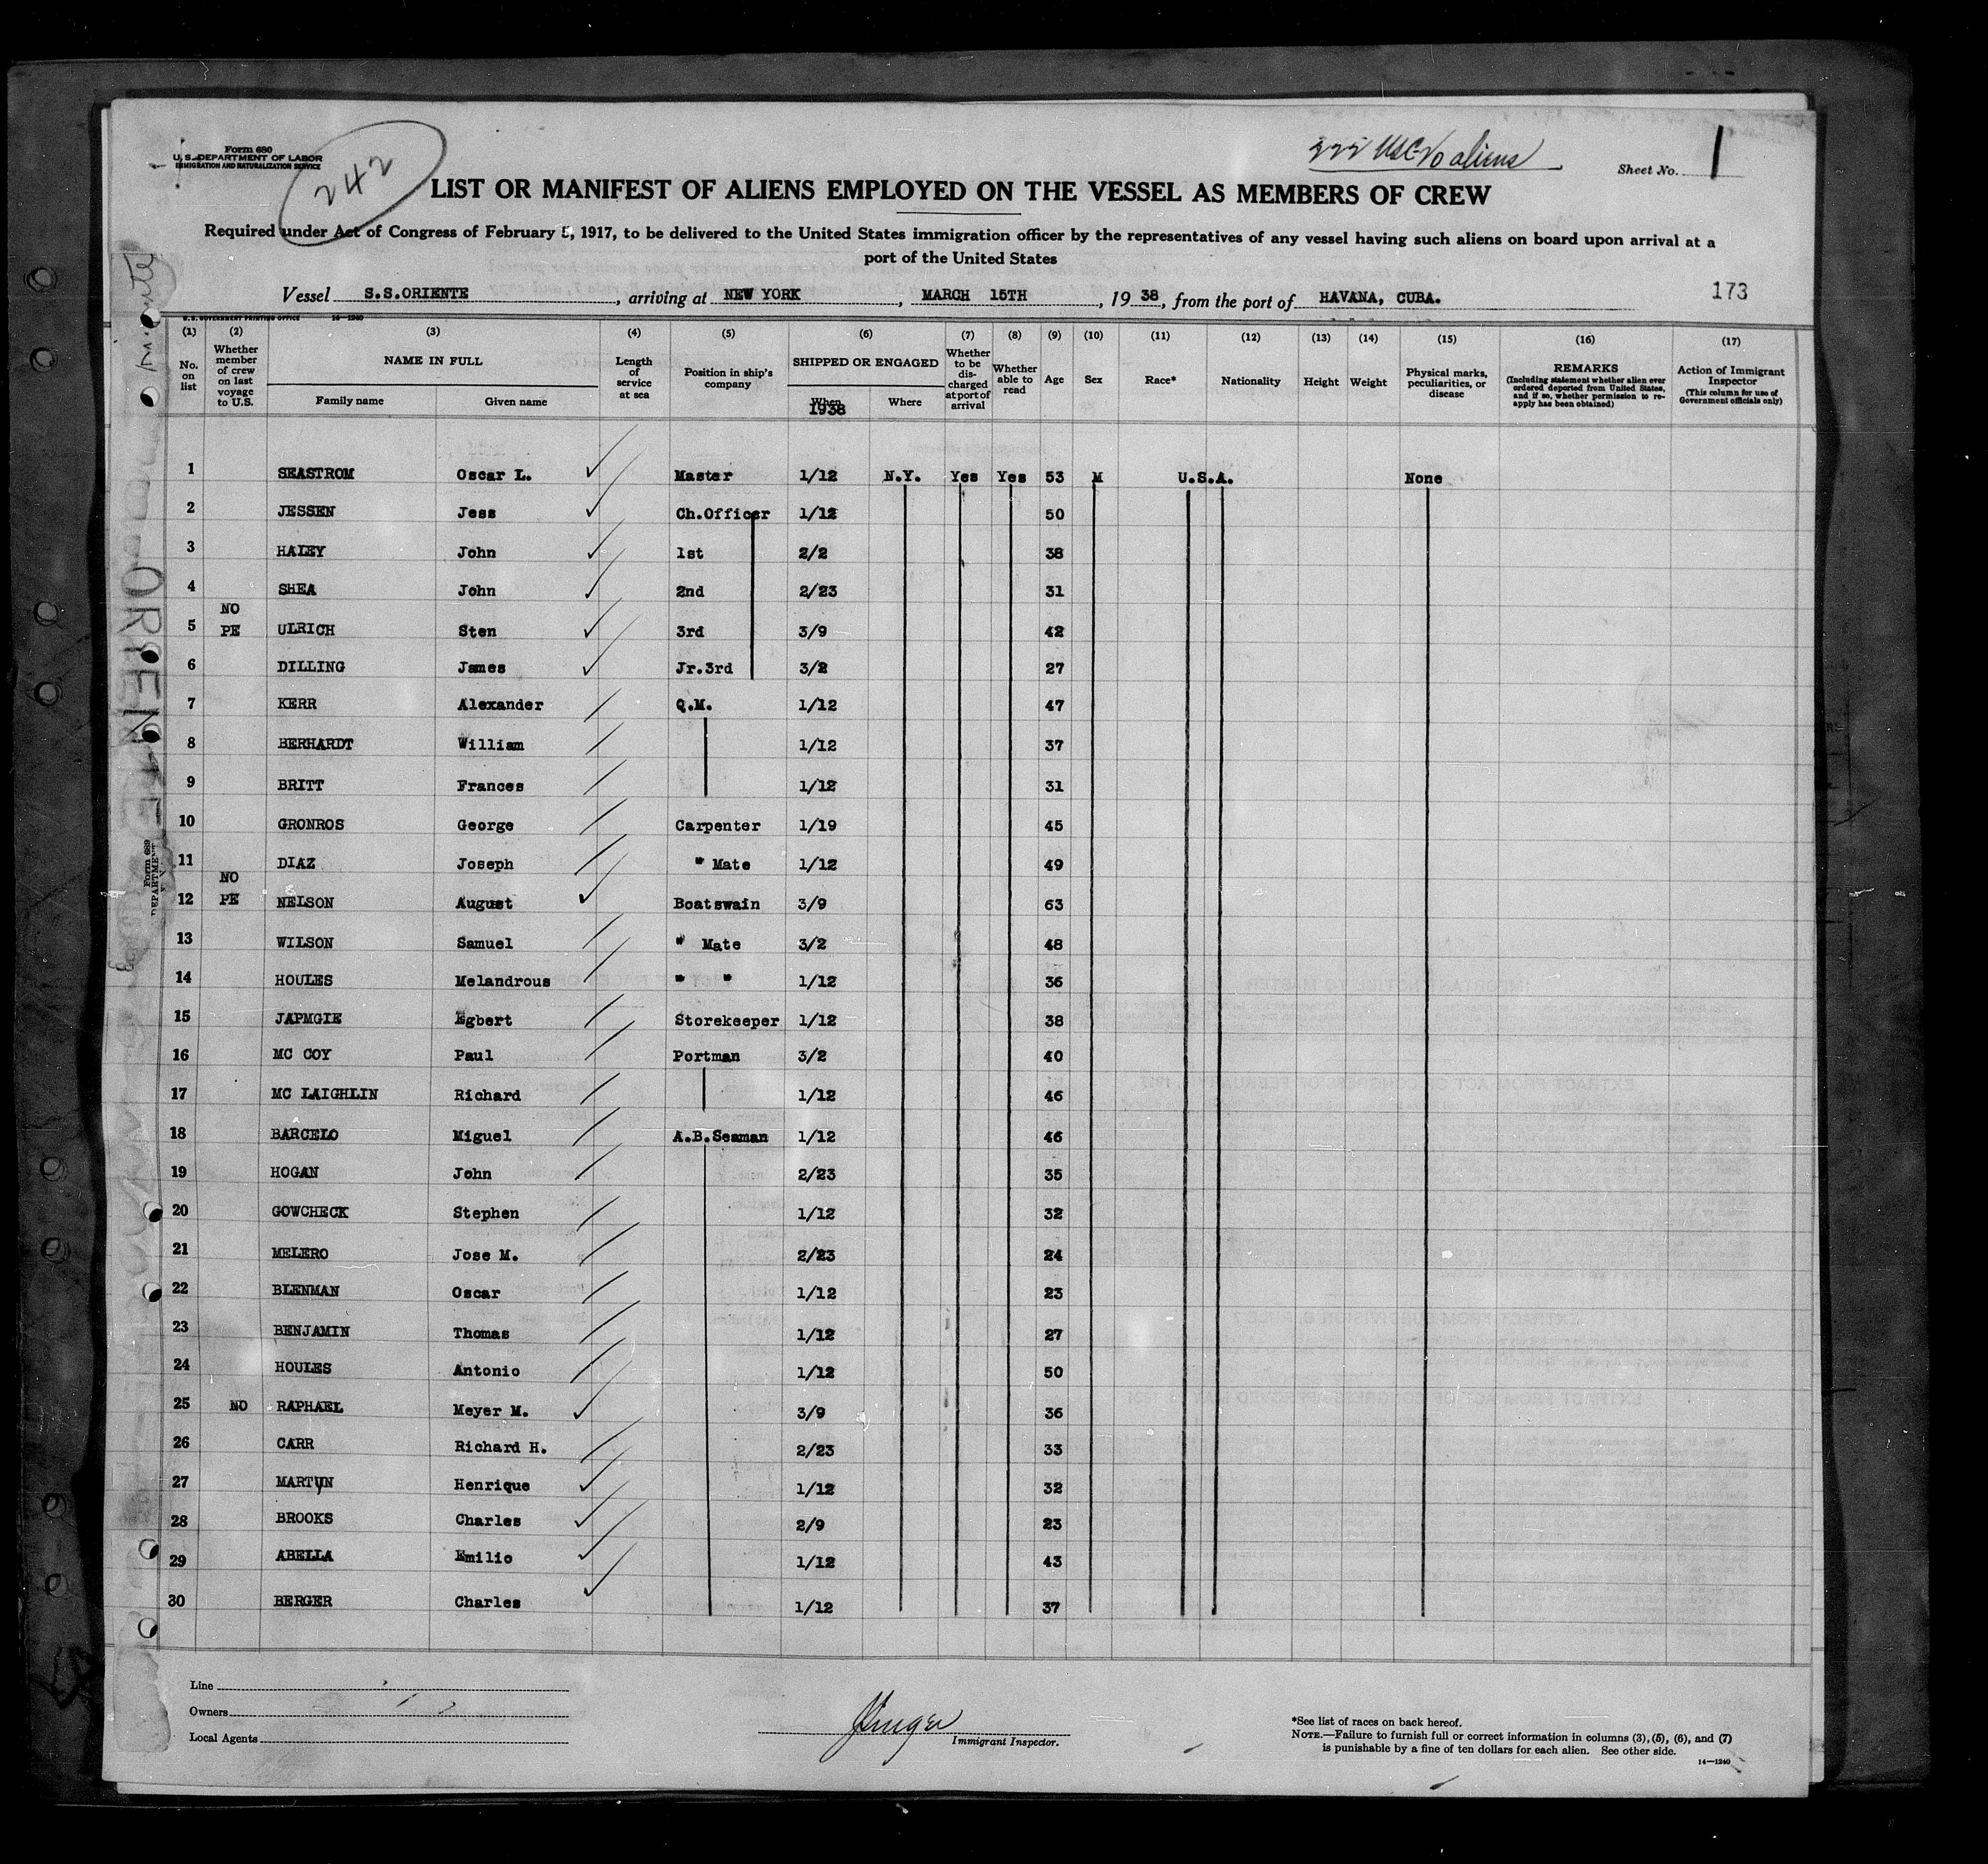 Form 680
U. S. DEPARTMENT OF LABOR
IMMIGRATION AND NATURALIZATION SERVICE
242
222 USC 20 aliens
Sheet No. 1
LIST OR MANIFEST OF ALIENS EMPLOYED ON THE VESSEL AS MEMBERS OF CREW
Required under Act of Congress of February 5, 1917, to be delivered to the United States immigration officer by the representatives of any vessel having such aliens on board upon arrival at a
port of the United States
Vessel S.S.ORIENTE, arriving at NEW YORK, MARCH 15TH, 1938, from the port of HAVANA, CUBA.
173
U.S. GOVERNMENT PRINTING OFFICE 14—1240
(1) (2) (3) (4) (5) (6) (7) (8) (9) (10) (11) (12) (13) (14) (15) (16) (17)
No. on list
Whether member of crew on last voyage to U.S.
NAME IN FULL
Family name Given name
Length of service at sea
Position in ship's company
SHIPPED OR ENGAGED
When 1938 Where
Whether to be discharged at port of arrival
Whether able to read
Age
Sex
Race*
Nationality
Height
Weight
Physical marks, peculiarities, or disease
REMARKS
(Including statement whether alien ever ordered deported from United States, and if so, whether permission to re-apply has been obtained)
Action of Immigrant Inspector
(This column for use of Government officials only)
1 SEASTROM Oscar L. Master 1/12 N.Y. Yes Yes 53 M U.S.A. None
2 JESSEN Jess Ch.Officer 1/12 50
3 HALEY John 1st 2/2 38
4 SHEA John 2nd 2/23 31
5 NO PE ULRICH Sten 3rd 3/9 42
6 DILLING James Jr.3rd 3/2 27
7 KERR Alexander Q.M. 1/12 47
8 BERHARDT William 1/12 37
9 BRITT Frances 1/12 31
10 GRONROS George Carpenter 1/19 45
11 DIAZ Joseph " Mate 1/12 49
12 NO PE NELSON August Boatswain 3/9 63
13 WILSON Samuel " Mate 3/2 48
14 HOULES Melandrous " " 1/12 36
15 JAPMGIE Egbert Storekeeper 1/12 38
16 MC COY Paul Portman 3/2 40
17 MC LAIGHLIN Richard 1/12 46
18 BARCELO Miguel A.B.Seaman 1/12 46
19 HOGAN John 2/23 35
20 GOWCHECK Stephen 1/12 32
21 MELERO Jose M. 2/23 24
22 BLENMAN Oscar 1/12 23
23 BENJAMIN Thomas 1/12 27
24 HOULES Antonio 1/12 50
25 NO RAPHAEL Meyer M. 3/9 36
26 CARR Richard H. 2/23 33
27 MARTYN Henrique 1/12 32
28 BROOKS Charles 2/9 23
29 ABELLA Emilio 1/12 43
30 BERGER Charles 1/12 37
Line
Owners
Local Agents
Immigrant Inspector.
*See list of races on back hereof.
NOTE.—Failure to furnish full or correct information in columns (3), (5), (6), and (7)
is punishable by a fine of ten dollars for each alien. See other side.
14—1240